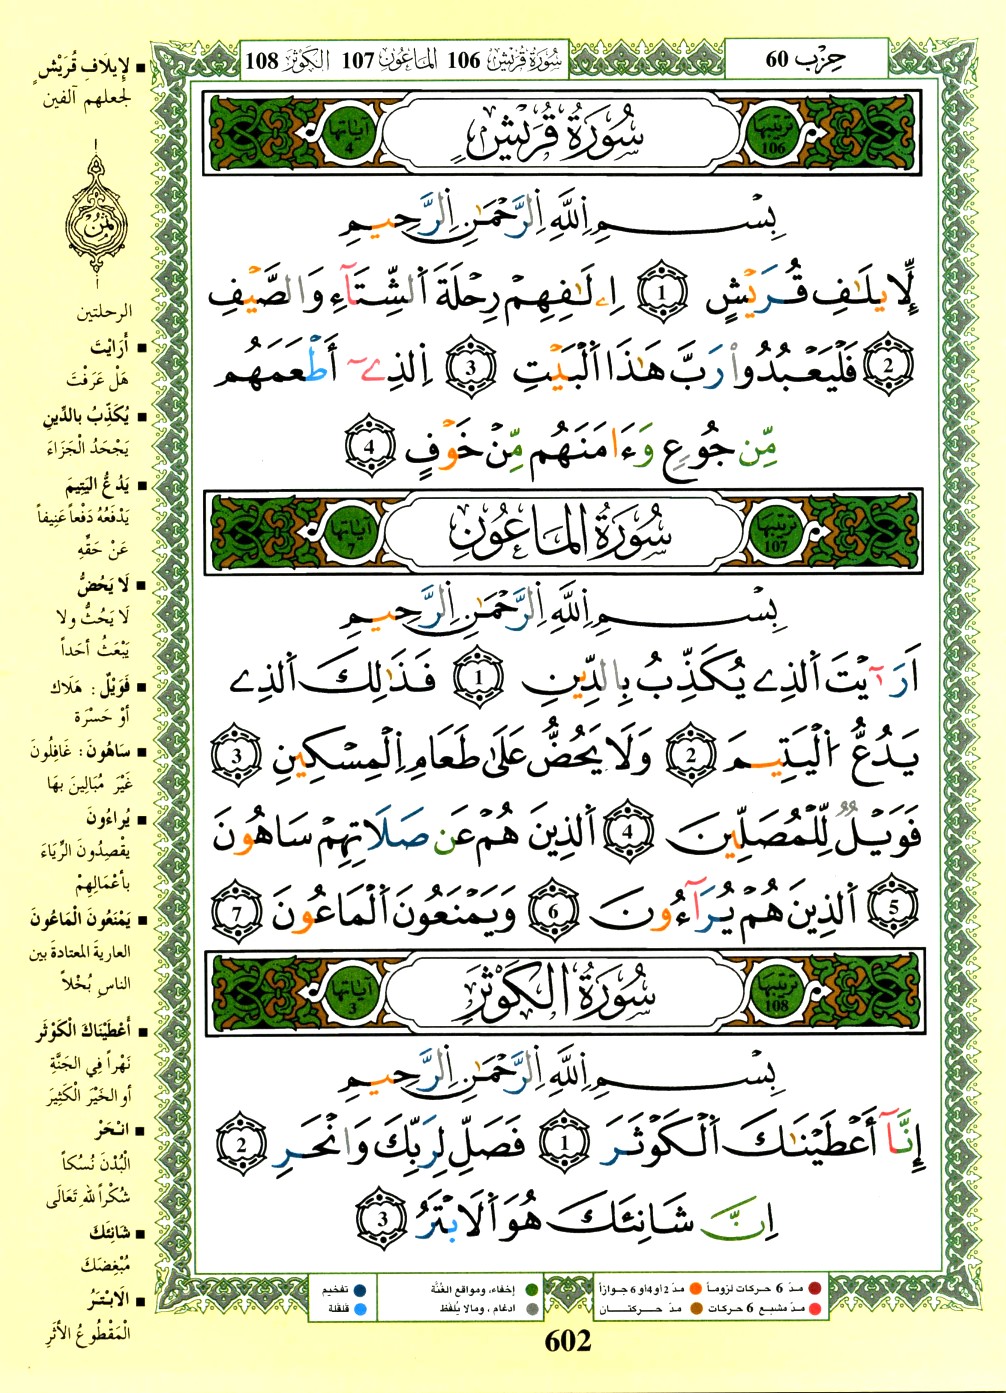 حِزْب 60
سُورَةُ قُرَيْشٍ 106 المَاعُون 107 الكَوْثَر 108
سُورَةُ قُرَيْشٍ
ترتيبها 106
آياتها 4
بِسْمِ اِللَّهِ اِلرَّحْمَٰنِ اِلرَّحِيمِ
لِإِيلَٰفِ قُرَيْشٍ 1 اِۦلَٰفِهِمْ رِحْلَةَ اَلشِّتَآءِ وَالصَّيْفِ
2 فَلْيَعْبُدُواْ رَبَّ هَٰذَا اَلْبَيْتِ 3 اِلذِےٓ أَطْعَمَهُم
مِّن جُوعٍ وَءَامَنَهُم مِّنْ خَوْفٍ 4
سُورَةُ المَاعُون
ترتيبها 107
آياتها 7
بِسْمِ اِللَّهِ اِلرَّحْمَٰنِ اِلرَّحِيمِ
اَرَٰٓيْتَ اَلذِے يُكَذِّبُ بِالدِّينِ 1 فَذَٰلِكَ اَلذِے
يَدُعُّ اُلْيَتِيمَ 2 وَلَا يَحُضُّ عَلَىٰ طَعَامِ اِلْمِسْكِينِ 3
فَوَيْلٌ لِّلْمُصَلِّينَ 4 اَلذِينَ هُمْ عَن صَلَاتِهِمْ سَاهُونَ
5 اَلذِينَ هُمْ يُرَآءُونَ 6 وَيَمْنَعُونَ اَلْمَاعُونَ 7
سُورَةُ الكَوْثَرِ
ترتيبها 108
آياتها 3
بِسْمِ اِللَّهِ اِلرَّحْمَٰنِ اِلرَّحِيمِ
إِنَّآ أَعْطَيْنَٰكَ اَلْكَوْثَرَ 1 فَصَلِّ لِرَبِّكَ وَانْحَرِ 2
اِنَّ شَانِئَكَ هُوَ اَلَابْتَرُ 3
■ لِإِيلَافِ قُرَيْشٍ
لجعلهم آلفين
ثُمُن
الرحلتين
■ أَرَايْتَ
هَلْ عَرَفْتَ
■ يُكَذِّبُ بالدِّينِ
يَجْحَدُ الْجَزَاءَ
■ يَدُعُّ اليَتِيمَ
يَدْفَعُهُ دَفْعاً عَنِيفاً
عَنْ حَقِّهِ
■ لَا يَحُضُّ
لَا يَحُثُّ ولا
يَبْعَثُ أحَداً
■ فَوَيْلٌ : هَلَاك
أوْ حَسْرَة
■ سَاهُونَ : غَافِلُونَ
غَيْرَ مُبَالِينَ بهَا
■ يُراءُونَ
يقْصِدُونَ الرِّيَاءَ
بأعْمَالِهِمْ
■ يَمْنَعُونَ الْمَاعُونَ
العارية المعتادة بين
الناسِ بُخْلاً
■ أعْطَيْنَاكَ الْكَوْثَرَ
نَهْراً فِي الجَنَّةِ
أو الخَيْرَ الْكَثِيرَ
■ انْحَرْ
الْبُدْنَ نُسُكاً
شُكْراً للهِ تَعَالَى
■ شَانِئَكَ
مُبْغِضَكَ
■ الَابْتَرُ
الْمَقْطُوعُ الأثَرِ
مدّ 6 حركات لزوماً مدّ 2 أو 4 أو 6 جوازاً إخفاء، ومواقع الغُنَّة تفخيم
مدّ مشبع 6 حركات مدّ حركتـــان ادغام ، ومالا يُلفَظ قلقلة
602